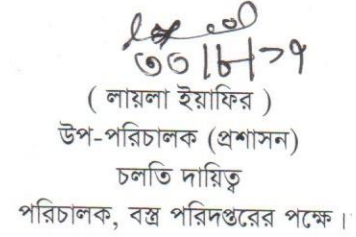 ৩০|৮|১৭
( লায়লা ইয়াফির )
উপ-পরিচালক (প্রশাসন)
চলতি দায়িত্ব
পরিচালক, বস্ত্র পরিদপ্তরের পক্ষে।